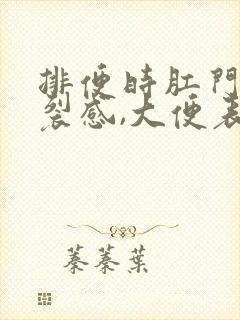 排便时肛门
裂感,大便表
蓁蓁葉